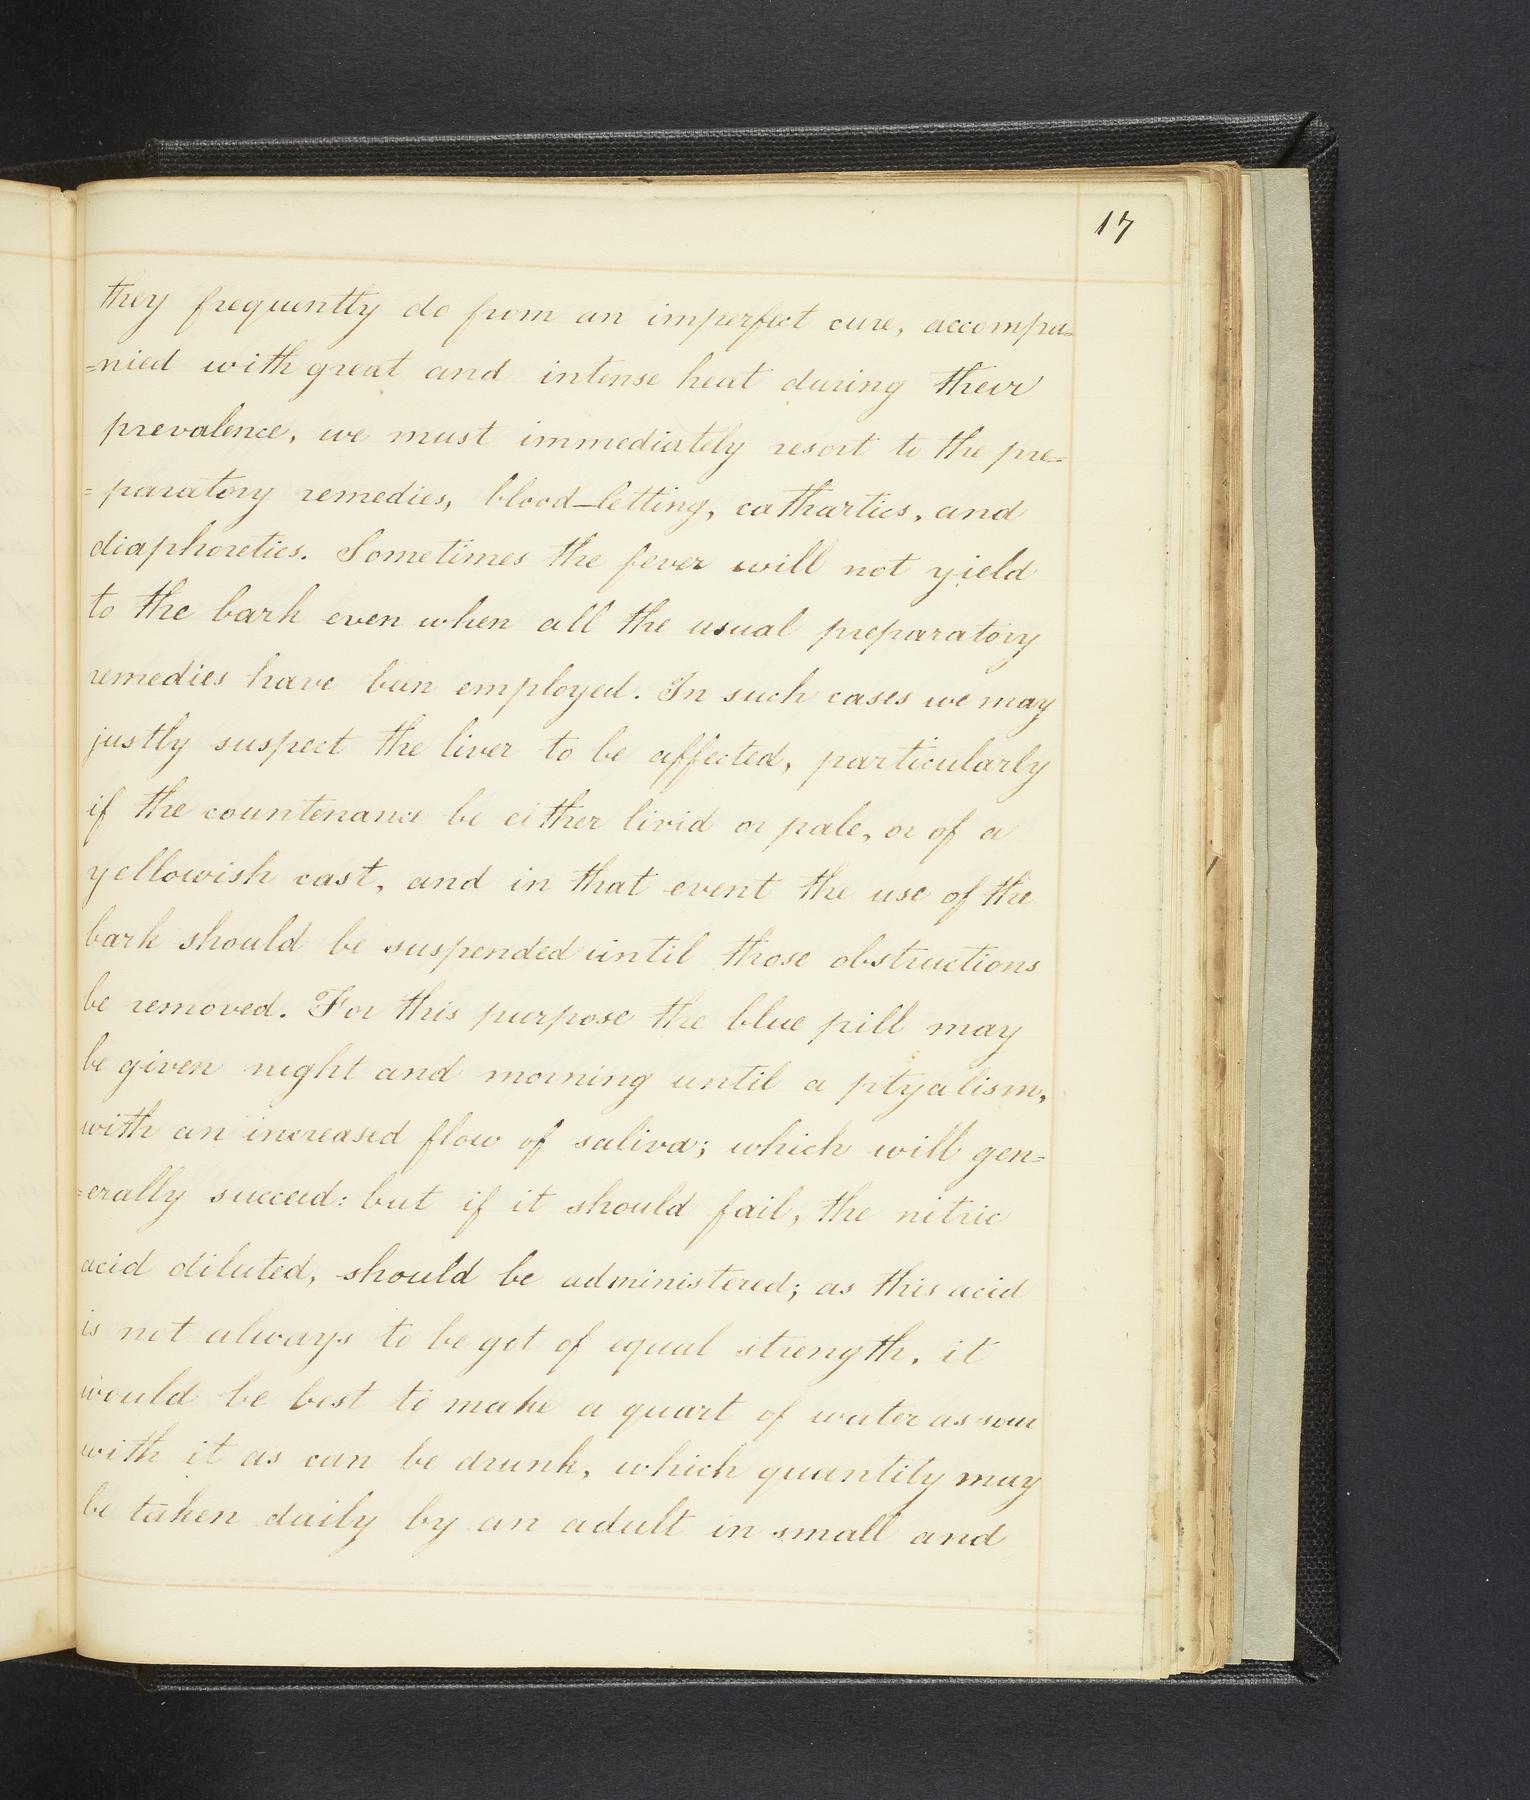 17
they frequently do from an imperfect cure, accompa=
=nied with great and intense heat during their
prevalence, we must immediately resort to the pre=
=paratory remedies, blood-letting, cathartics, and
diaphoretics. Sometimes the fever will not yield
to the bark even when all the usual preparatory
remedies have been employed. In such cases we may
justly suspect the liver to be affected, particularly
if the countenance be either livid or pale, or of a
yellowish cast, and in that event the use of the
bark should be suspended until those obstructions
be removed. For this purpose the blue pill may
be given night and morning until a ptyalism,
with an increased flow of saliva; which will gen=
=erally succeed: but if it should fail, the nitric
acid diluted, should be administered; as this acid
is not always to be got of equal strength, it
would be best to make a quart of water as sour
with it as can be drunk, which quantity may
be taken daily by an adult in small and